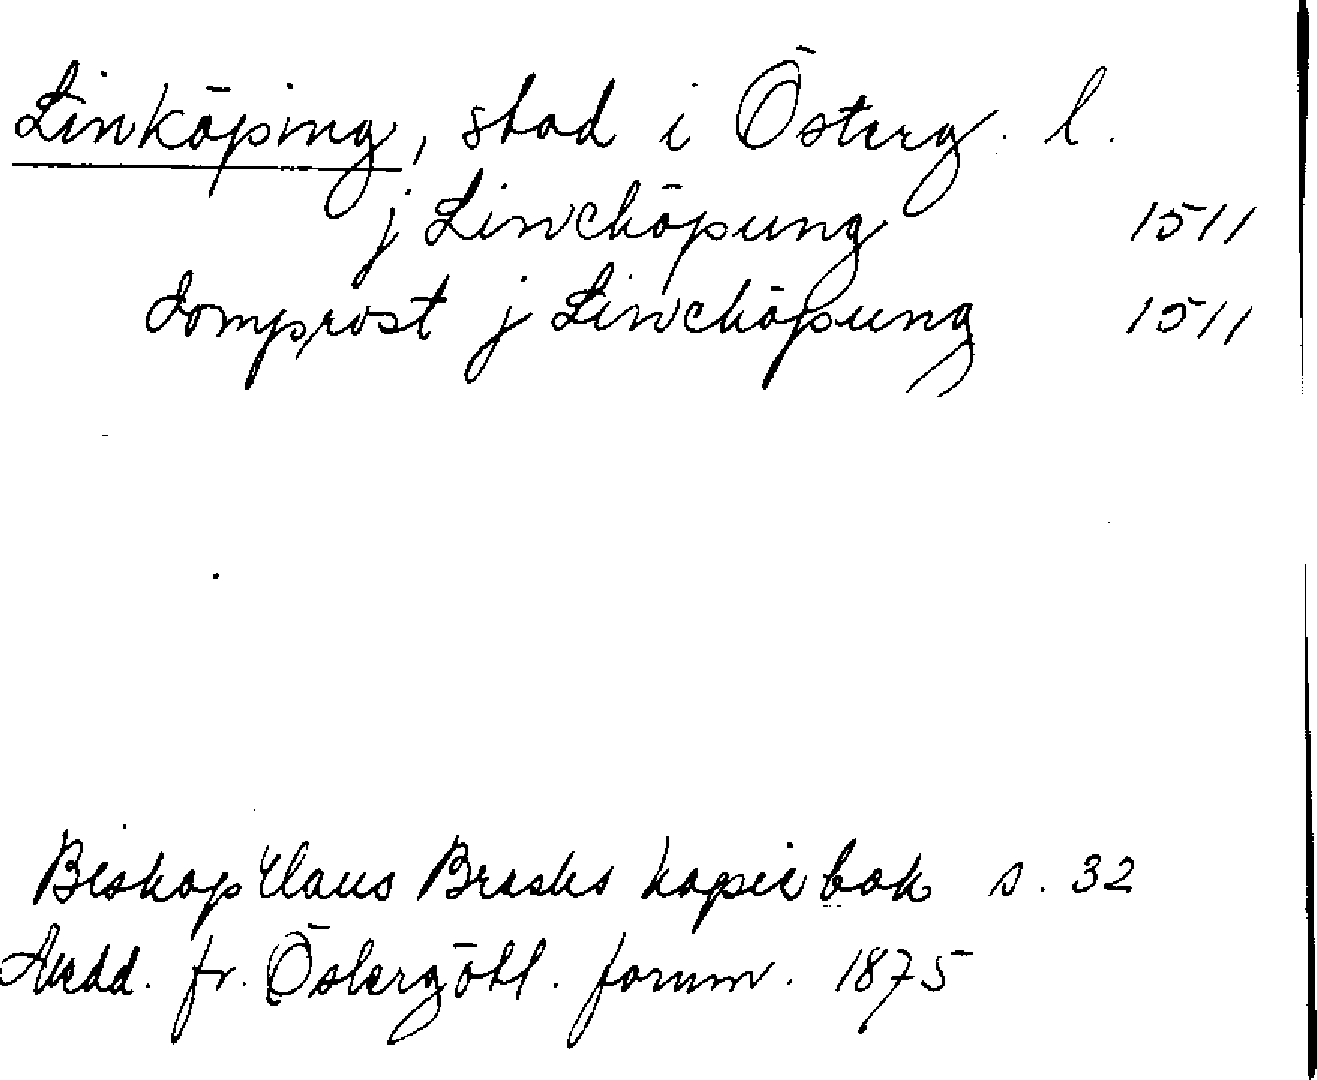 Linköping, stad i Österg. l.
j Linchöpung 1511
domprost j Linchöpung 1511
Biskop Hans Brasks kopiebok s. 32
Medd. fr. Östergötl. fornm. 1875